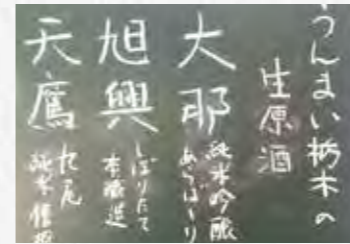 うんまい栃木の
生原酒
大那
純米吟醸
あらばしり
旭興
しぼりたて
本醸造
天鷹
九尾
純米